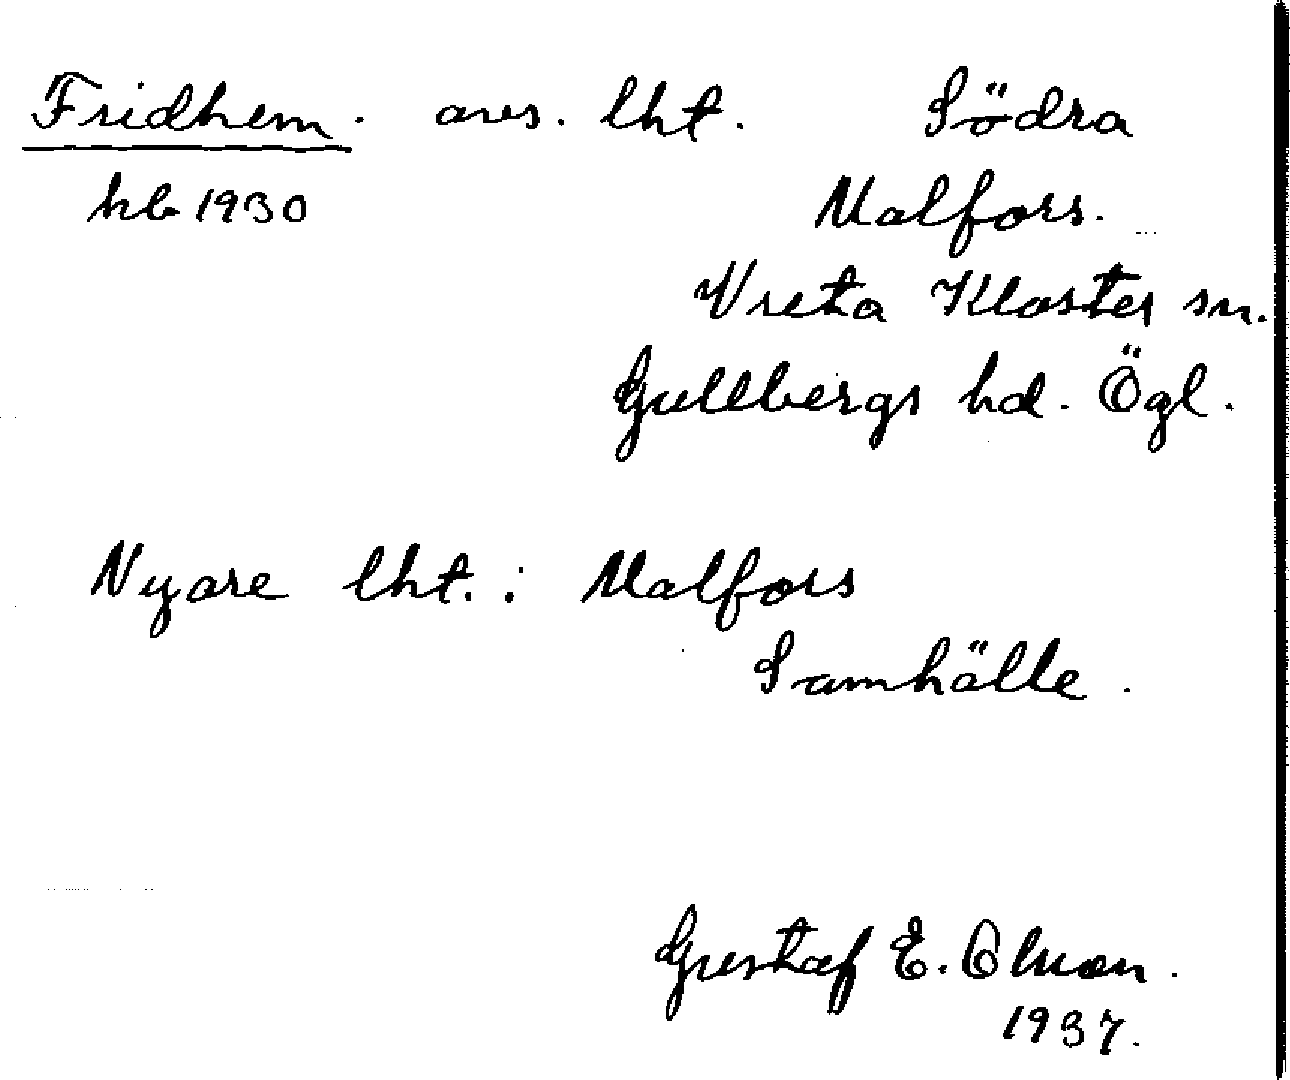 Fridhem. avs. lht. Södra
hb 1930 Malfors.
Vreta Kloster sn.
Gullbergs hd. Ögl.
Nyare lht.: Malfors
Samhälle.
Gustaf E. Olsson.
1937.